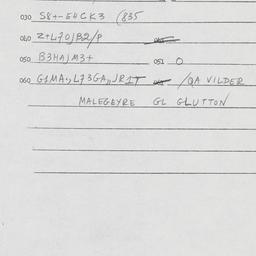 030 S8+-EHCK3 (835
040 Z+L70JB2/P
050 B3HAJM3+ 051 O
060 G1MA.,L73GA,,JR1T /QA VILDER
MALEGEYRE GL GLUTTON